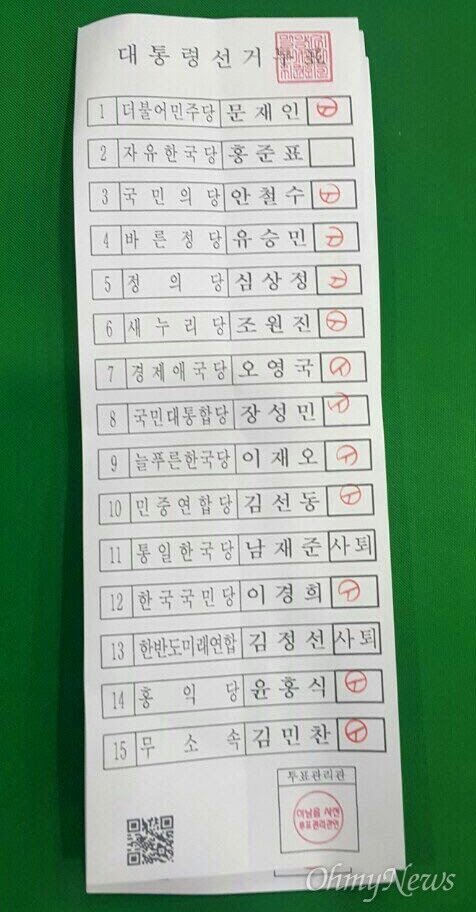 대통령선거투표
1 더불어민주당 문재인
2 자유한국당 홍준표
3 국민의당 안철수
4 바른정당 유승민
5 정의당 심상정
6 새누리당 조원진
7 경제애국당 오영국
8 국민대통합당 장성민
9 늘푸른한국당 이재오
10 민중연합당 김선동
11 통일한국당 남재준 사퇴
12 한국국민당 이경희
13 한반도미래연합 김정선 사퇴
14 홍익당 윤홍식
15 무소속 김민찬
투표관리관
사전
투표관리관인
OhmyNews